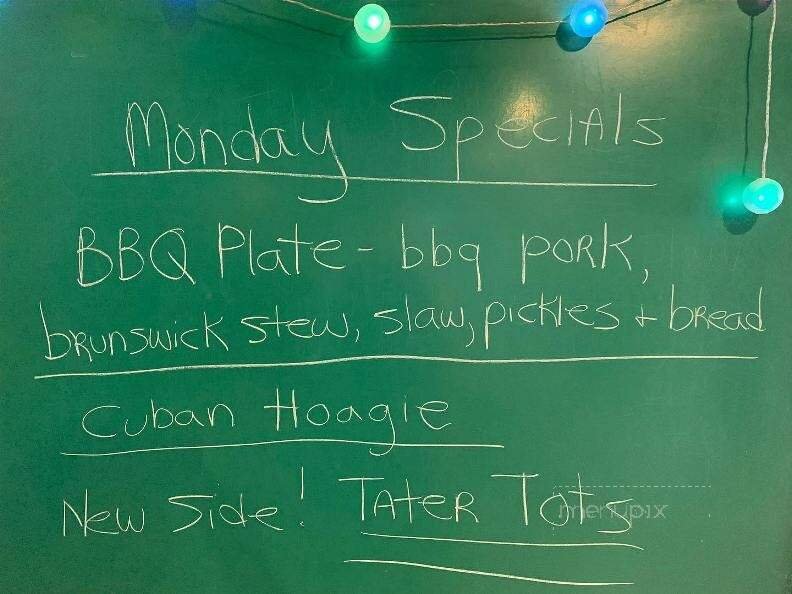 Monday Specials
BBQ Plate - bbq pork,
brunswick stew, slaw, pickles + bread
Cuban Hoagie
New Side! Tater Tots
menupix